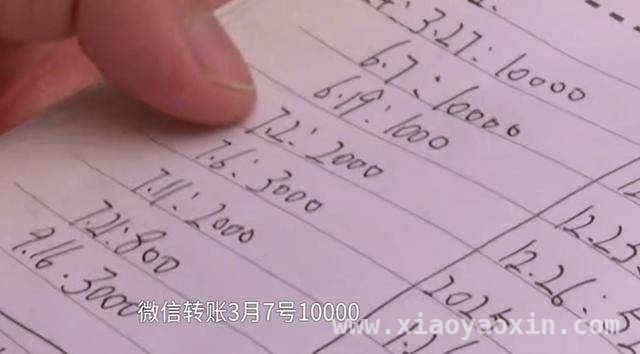 3.27:10000
6.7:10000
6.19:1000
7.2:2000
7.6:3000
7.11:2000
7.21.800
9.16.3000
12.23
12.26:
202
微信转账3月7号10000
www.xiaoyaoxin.com